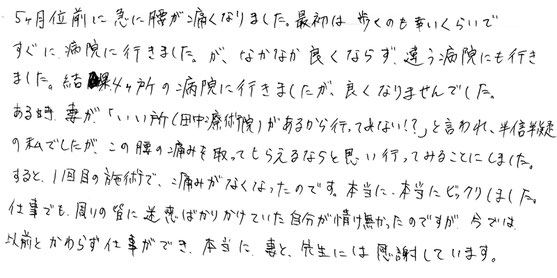 5ヶ月位前に急に腰が痛くなりました。最初は歩くのも辛いくらいで
すぐに病院に行きました。が、なかなか良くならず、違う病院にも行き
ました。結果4ヶ所の病院に行きましたが、良くなりませんでした。
ある時、妻が「いい所(田中療術院)があるから行ってみない!?」と言われ、半信半疑
の私でしたが、この腰の痛みを取ってもらえるならと思い行ってみることにしました。
すると、1回目の施術で、痛みがなくなったのです。本当に、本当にビックリしました。
仕事でも、周りの皆に迷惑ばかりかけていた自分が情け無かったのですが、今では、
以前とかわらず仕事ができ、本当に、妻と、先生には感謝しています。